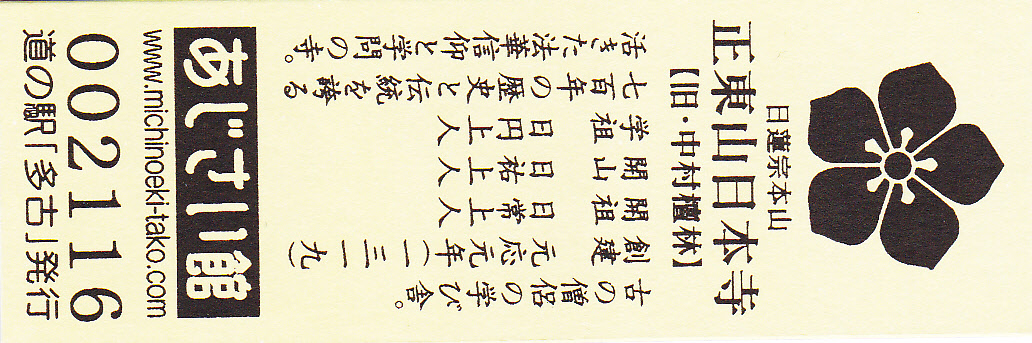 日蓮宗本山
正東山日本寺
【旧・中村檀林】
古の僧侶の学び舎。
創建 元応元年(一三一九)
開祖 日常上人
開山 日祐上人
学祖 日円上人
七百年の歴史と伝統を誇る
活きた法華信仰と学問の寺。
あじさい館
www.michinoeki-tako.com
002116
道の駅「多古」発行